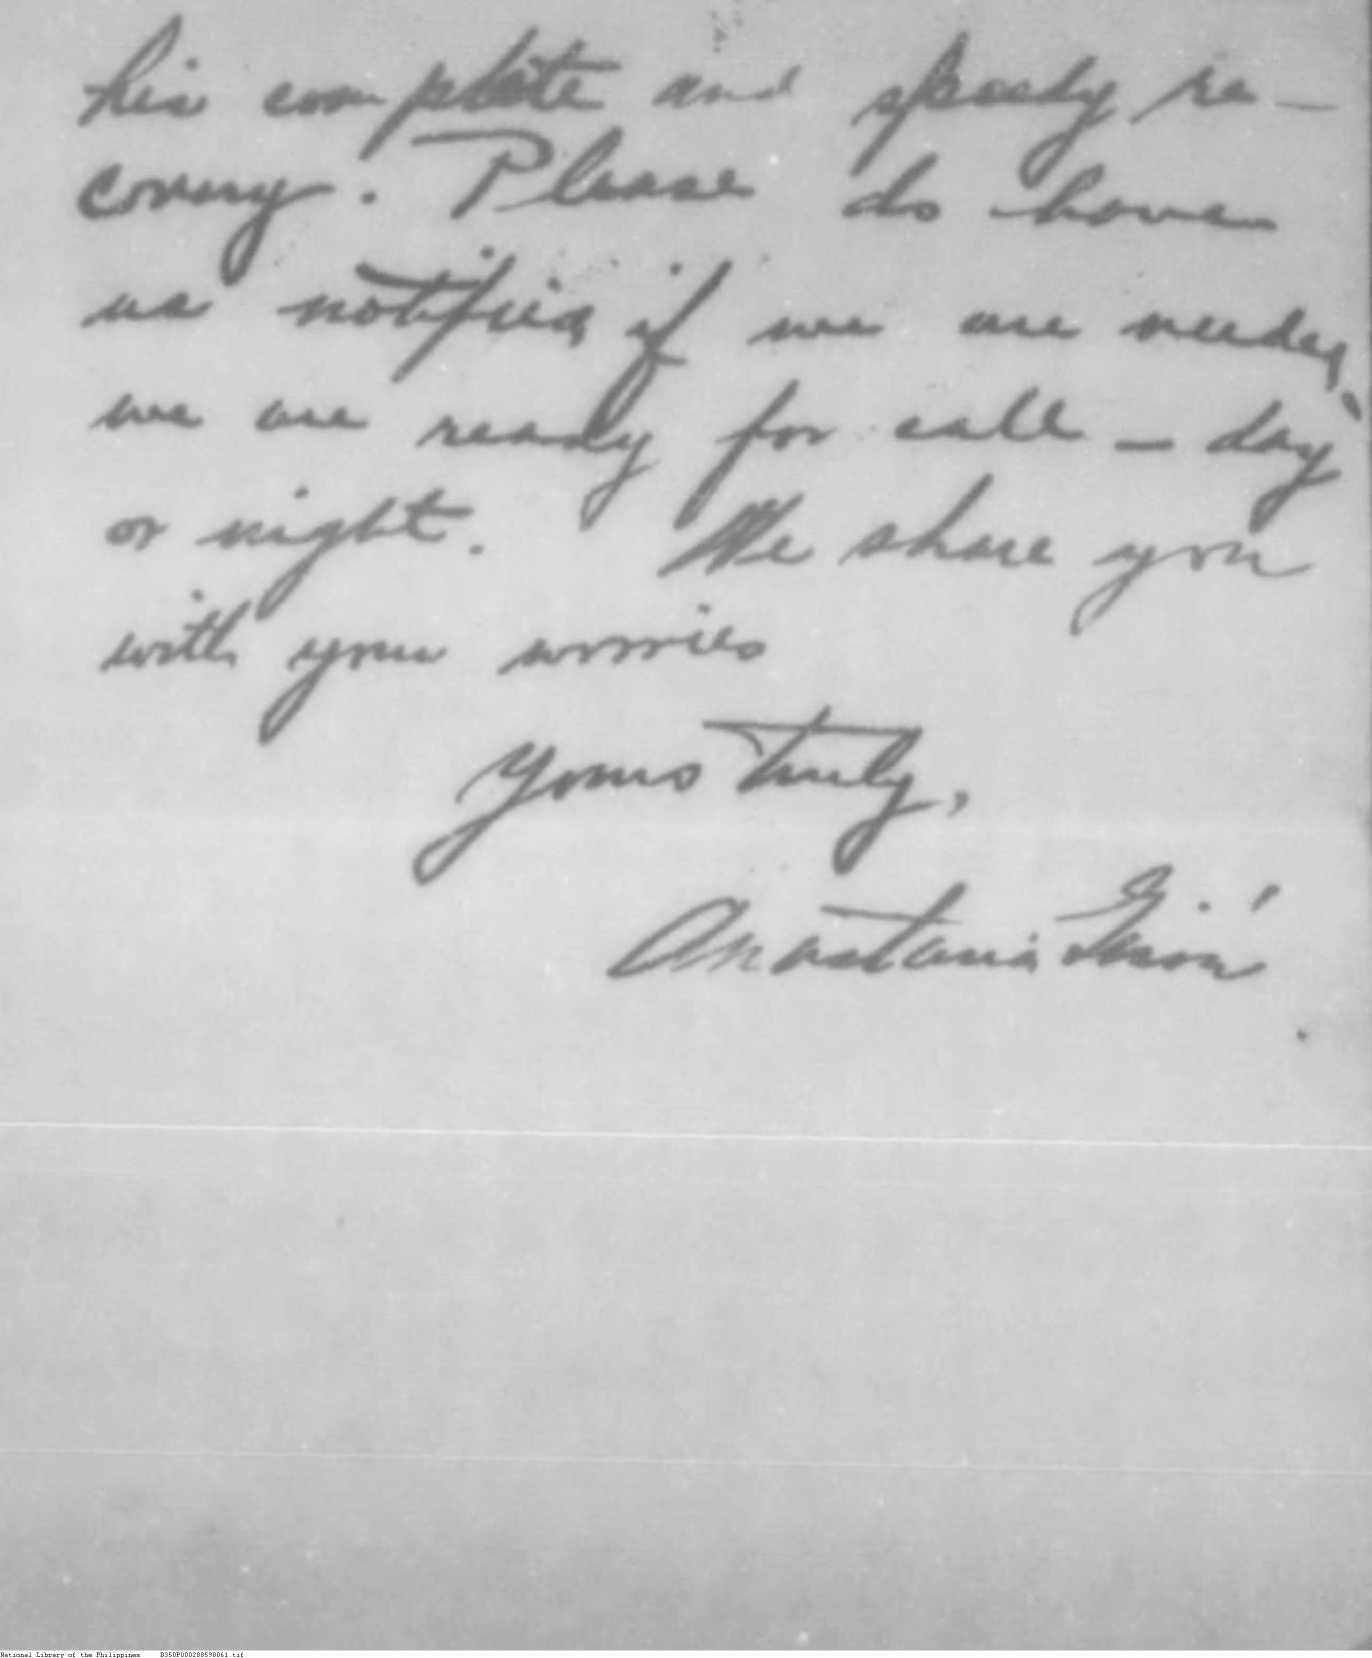 his complete and speedy re-
covery. Please do have
us notified if we are needed,
we are ready for call - day
or night. We share you
with your worries
Yours truly,
Anastacia
National Library of the Philippines